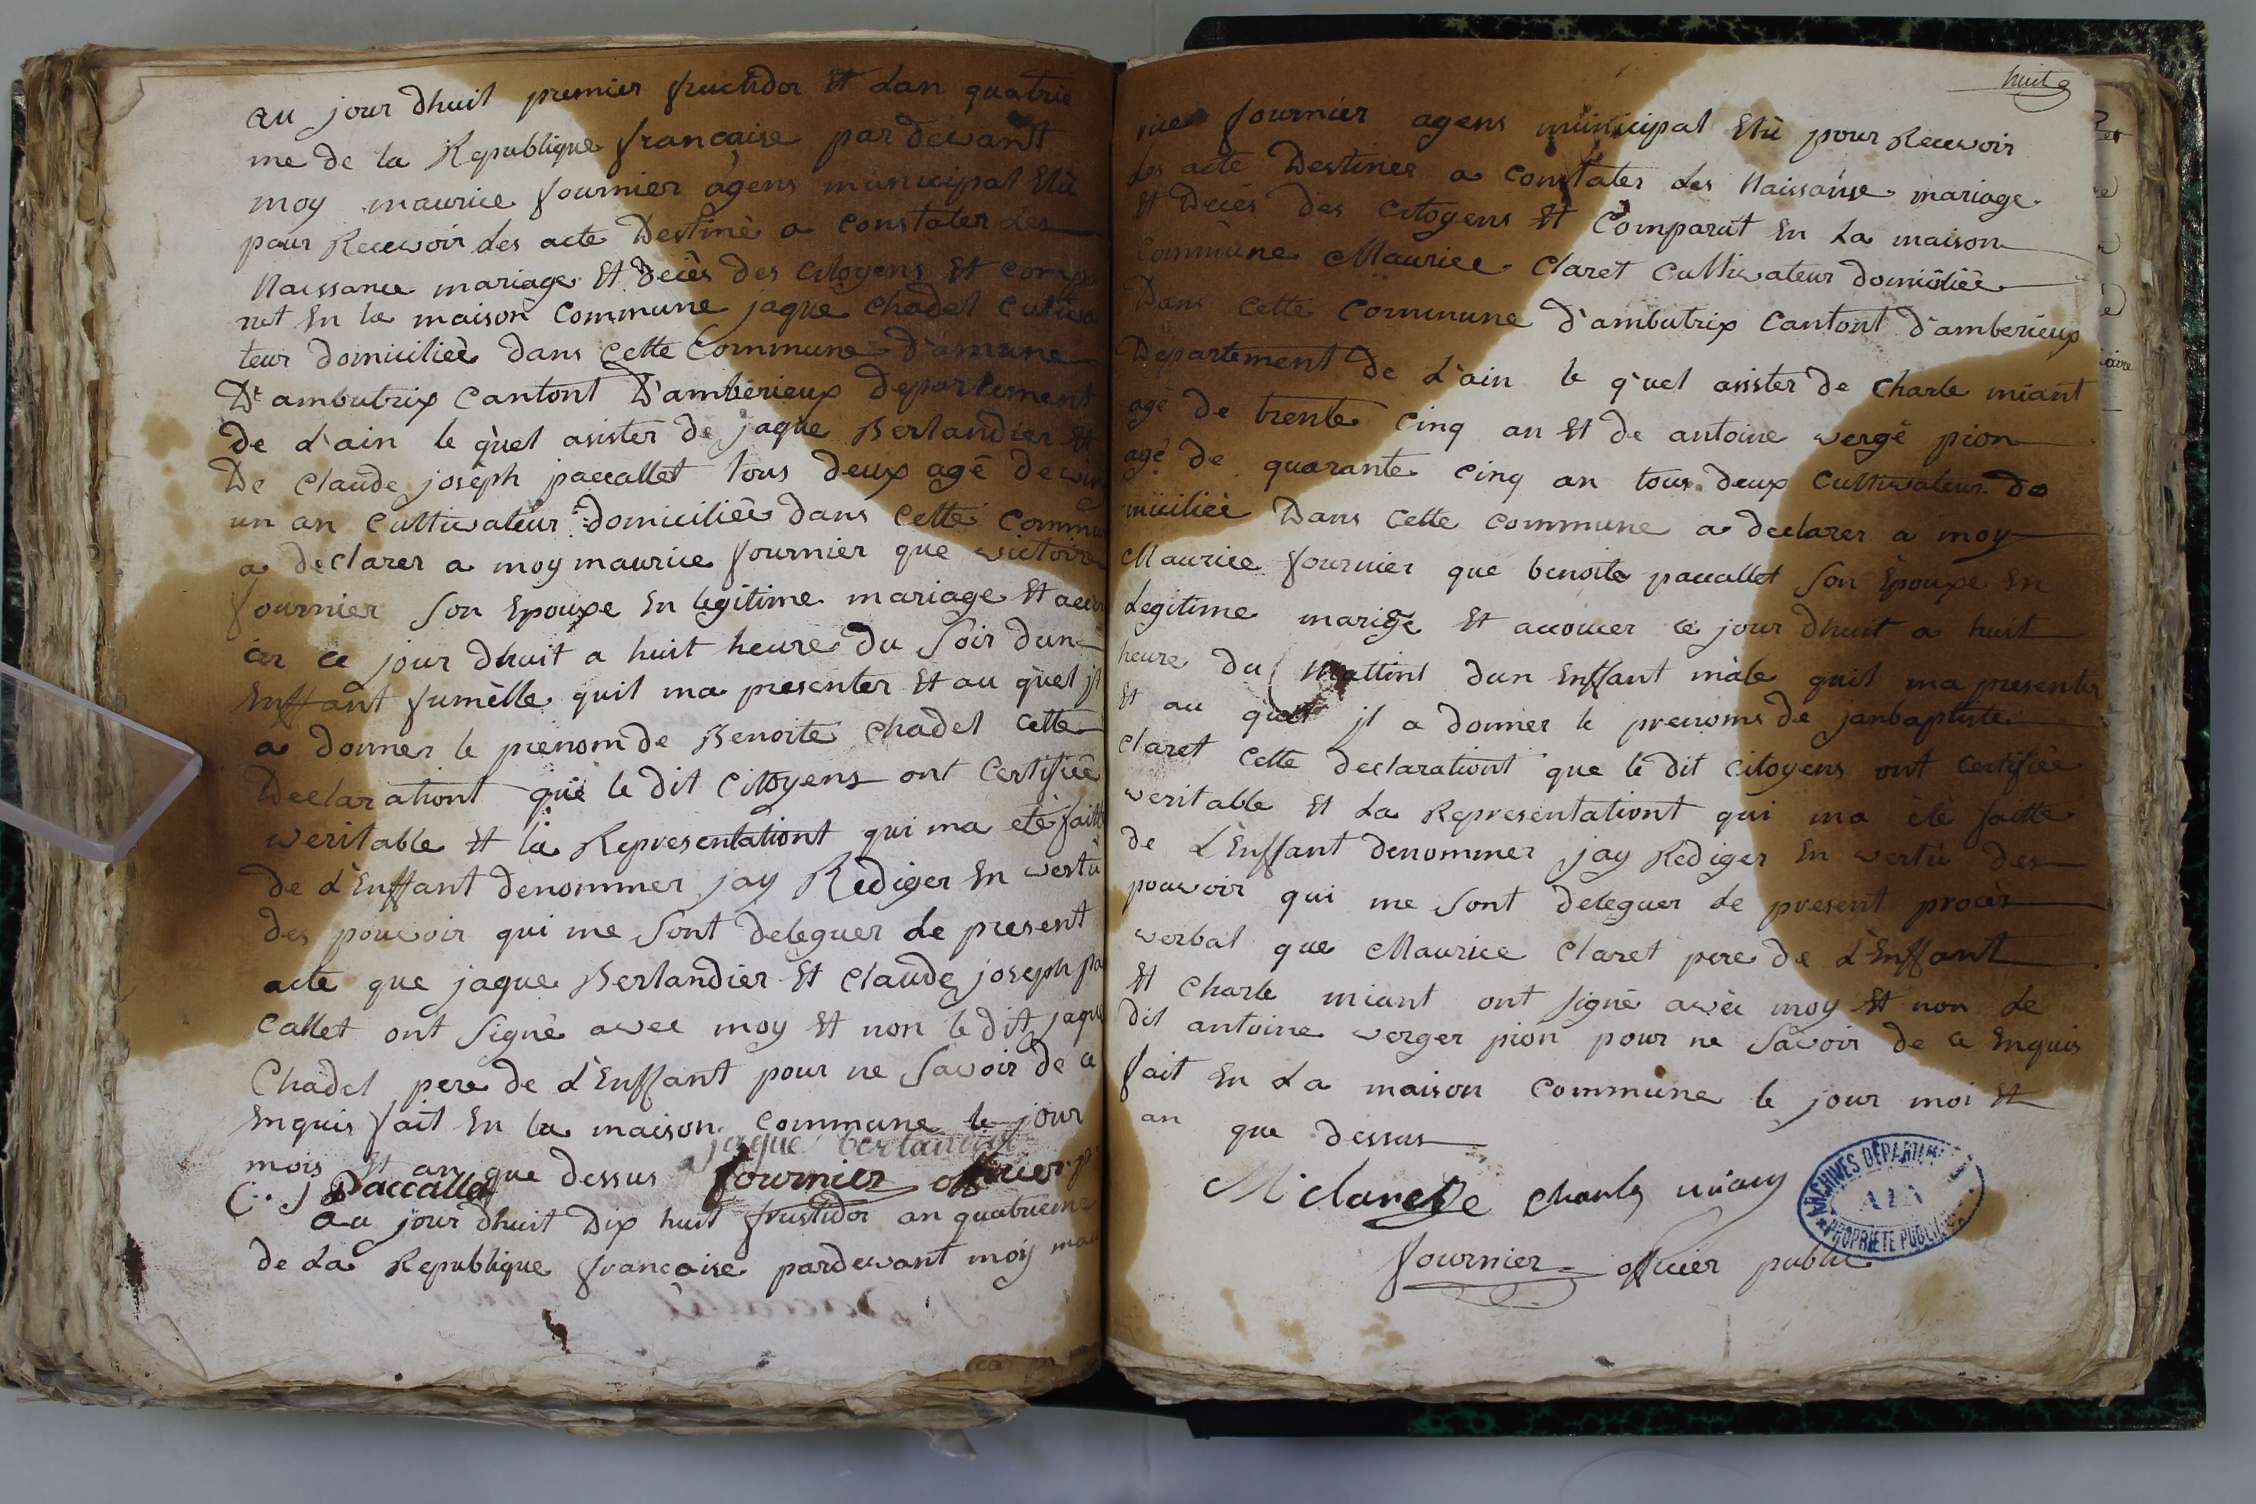 au jour dhuit premier fructidor Et Lan quatrie
me de la Republique francaise par devant
moy maurice fournier agens municipal Elû
pour Recevoir Les acte Destiné a constater Les
Naissance mariage Et decès des citoyens Et compa
rut En la maison Commune jaque chadel cultiva
teur domiciliée dans Cette Commune D'
Dt ambutrix Cantont D'amberieux departement
De L'ain le quel asister de jaque Berlandier Et
De Claude joseph paccallet tous deux agé de vin
un an cultivateur domiciliée dans cette commun
a declarer a moy maurice fournier que victoire
fournier Son Epouxe En legitime mariage Et accou
cer ce jour dhuit a huit heure du Soir dun
Enffant fumelle quil ma presenter Et au quel jl
a donner le prenom de Benoite Chadel cette
Declarationt que le dit Citoyens ont Certifiée
veritable Et la Representationt qui ma eté faitte
de L'Enffant denommer jay Rediger En vertû
des pouvoir qui me Sont deleguer Le present
acte que jaque Berlandier Et Claude joseph pa
callet ont Signé avec moy Et non le dit jaque
Chadel pere de L'Enffant pour ne Savoir de ce
Enquis fait En la maison Commune le jour
jaque berlandier
mois Et an que dessus fournier officier p.
C. j Paccallet
au jour dhuit Dix huit frustidor an quatrieme
de La Republique francaise pardevant moy mau
huit
rice fournier agens municipal Elû pour Recevoir
Les acte Destinee a Constater Les Naissance mariage
Et Decés des Citoyens Et Comparut En La maison
Commune Maurice Claret Cultivateur domiciliée
Dans Cette Commune D'ambutrix Cantont D'amberieux
Departement de L'ain le quel asister de Charle miant
agé de trente Cinq an Et de antoine vergé pion
agé de quarante Cinq an tous deux Cultivateur do
miciliée Dans Cette Commune a declarer a moy
Maurice fournier que benoite paccallet Son Epouxe En
Legitime marige Et accoucer ce jour dhuit a huit
heure du mattint dun Enffant mâle quil ma presenter
Et au quel jl a donner le prenoms de janbaptiste
Claret Cette declarationt que le dit Citoyens ont certifiée
veritable Et La Representationt qui ma èté faitte
de L'Enffant denommer jay Rediger En vertû des
pouvoir qui me Sont deleguer Le present procès
verbal que Maurice Claret pere de L'Enffant
Et Charle miant ont signé avèc moy Et non Le
dit antoine verger pion pour ne Savoir de ce Enquis
fait En La maison Commune le jour moi Et
an que dessus
M Claret Charle miant
fournier officier public
ARCHIVES DÉPARTEMENTALES
AIN
PROPRIÉTÉ PUBLIQUE